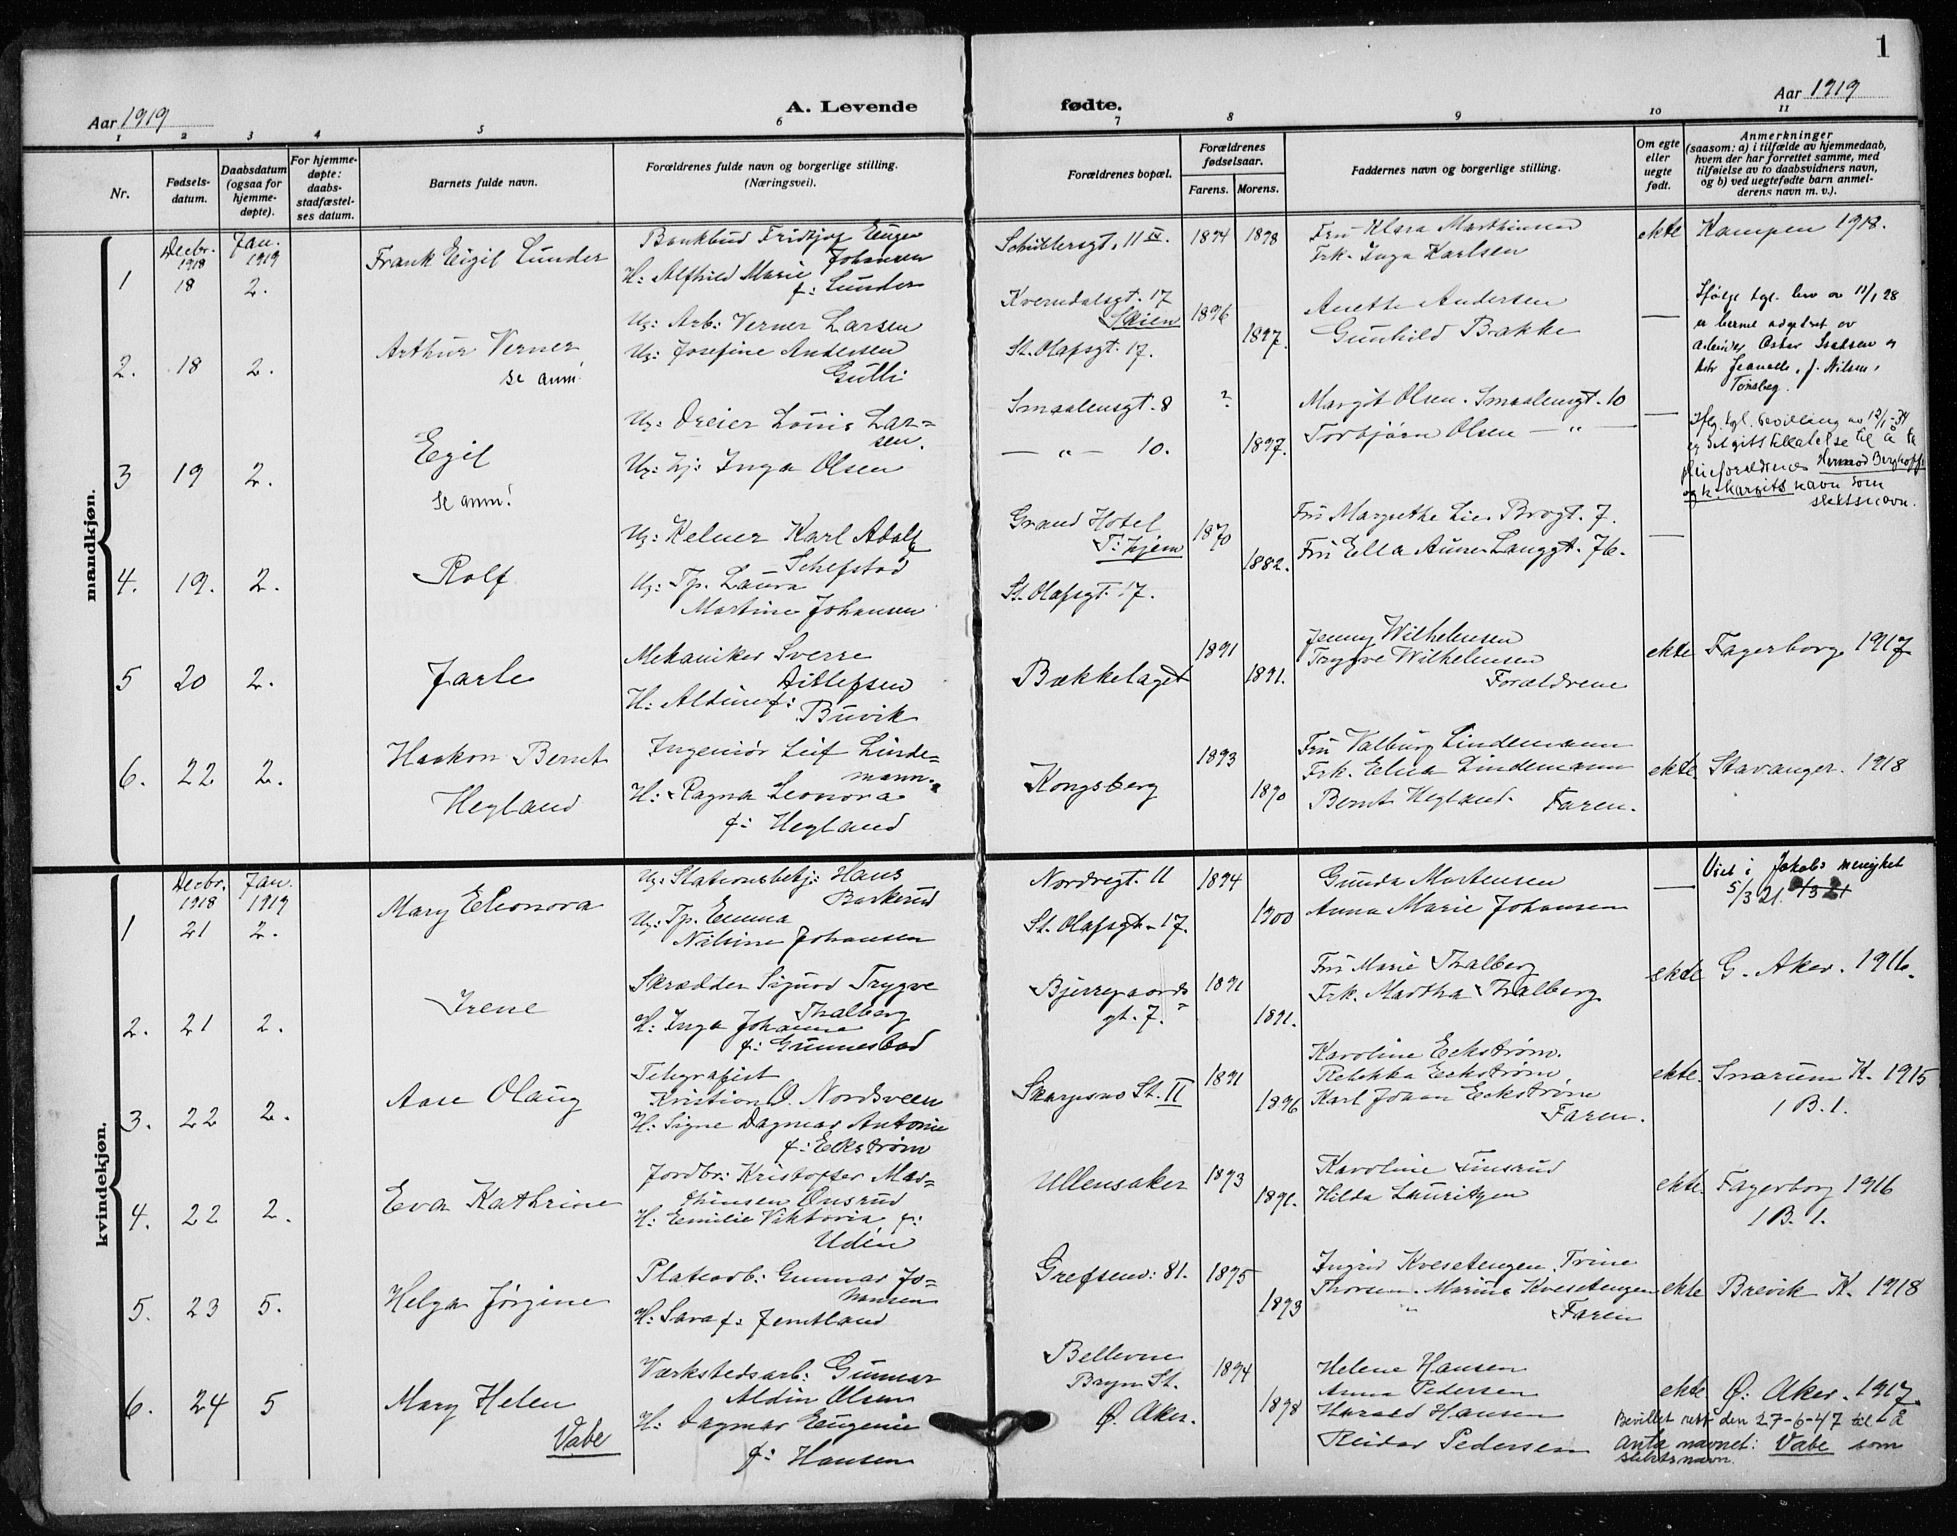 1
Aar 1919
A. Levende fødte.
Aar 1919
1 2 3 4 5 6 7 8 9 10 11
Nr.
Fødsels-
datum.
Daabsdatum
(ogsaa for
hjemme-
døpte).
For hjemme-
døpte:
daabs-
stadfæstel-
ses datum.
Barnets fulde navn.
Forældrenes fulde navn og borgerlige stilling.
(Næringsvei).
Forældrenes bopæl.
Forældrenes
fødselsaar.
Farens. Morens.
Faddernes navn og borgerlige stilling.
Om egte
eller
uegte
født.
Anmerkninger
(saasom: a) i tilfælde av hjemmedaab,
hvem der har forrettet samme, med
tilføielse av to daabsvidners navn,
og b) ved uegtefødte barn anmel-
derens navn m. v.).
mandkjøn.
Decbr. Jan.
1918 1919
1 18 2.
Frank Eigil Lunder
Bankbud Fridtjof Eugen
Johansen
H: Alfhild Marie
f: Lunder
Schüblersgt. 11 IV. 1894 1898
Fru Klara Marthinsen
Frk. Inga Karlsen
ekte Kampen 1918.
2. 18 2.
Arthur Verner
se anm!
Ug: Arb: Verner Larsen
Ug: Josefine Andersen
Gulli
Kverndalsgt. 17
Skien 1896
St. Olafsgt. 17. 1897.
Anette Andersen
Gunhild Bakke
—
Ifølge kgl. brev av 11/1 28
er barnet adoptert av
arbeider Oskar Isaksen og
hstr Jeanette, f. Nilsen,
Tønsberg.
3 19 2.
Egil
se anm!
Ug: Dreier Louis Lar=
sen.
Ug: Inga Olsen
Smaalensgt. 8 ?
— " — 10. 1897.
Margit Olsen. Smaalensgt. 10
Torbjørn Olsen — " —
—
Iflg. kgl. bevilling av 12/1-34
er det gitt tillatelse til å ta
pleieforældrenes Hermod Berghoffs
og h. Margits navn som
slektsnavn.
4. 19. 2.
Rolf
Ug: Kelner Karl Adolf
Schefstad
Ug: Tp. Laura
Martine Johansen
Grand Hotel
T:hjem 1870
St. Olafsgt. 17. 1882.
Fru Margrethe Lie. Brogt. 7.
Fru Ella Aune Langgt. 76.
—
5 20 2.
Jarle
Mekaniker Sverre
Ditlefsen
H: Aldine f:
Buvik
Bækkelaget 1891 1891.
Jenny Wilhelmsen
Trygve Wilhelmsen
Forældrene
ekte Fagerborg 1917
6. 22 2.
Haakon Bernt
Hegland
Ingeniør Leif Linde=
mann.
H: Ragna Leonora
f: Hegland
Kongsberg 1893 1890
Fru Valburg Lindemann
Frk. Elna Lindemann
Bernt Hegland. Faren.
ekte Stavanger. 1918
kvindekjøn.
Decbr. Jan.
1918 1919
1 21 2.
Mary Eleonora
Ug. Stationsbetj: Hans
Barkerud
Ug: Tp. Emma
Nalvine Johansen
Nordregt. 11 1894
St. Olafsgt. 17. 1900
Gunda Mortensen
Anna Marie Johansen
—
Viet i Jakobs menighet
5/3 21.
2. 21 2.
Irene
Skrædder Sigurd Trygve
Thalberg
H: Inga Johanne
f: Gunnestad
Bjerregaards=
gt. 7. 1891 1891.
Fru Marie Thalberg
Frk. Martha Thalberg
ekte G. Aker. 1916.
3. 22 2.
Aase Olaug
Telegrafist
Kristian O. Nordsveen
H: Signe Dagmar Antonie
f: Eckstrøm
Skarpsno St. II 1891 1896
Karoline Eckstrøm.
Rebekka Eckstrøm
Karl Johan Eckstrøm
Faren.
ekte. Snarum K. 1915
1 B. 1.
4. 22 2.
Eva Kathrine
Jordbr: Kristoffer Mar=
thinsen Onsrud
H: Emilie Viktoria f:
Uden
Ullensaker 1893 1891.
Karoline Tinsrud
Hilda Lauritzen
ekte. Fagerborg 1916
1 B. 1.
5. 23 5.
Helga Jørgine
Platearb: Gunnar Jo=
hansen
H: Sara f: Jemtland
Grefsenv: 81. 1895 1893
Ingrid Kvesetengen, Trine
Thorsen. Marius Kvesetengen
Faren
ekte Brevik K. 1918
6. 24 5
Mary Helen
Vabe
Værkstedsarb: Gunnar
Aldin Olsen
H: Dagmar Eugenie
f: Hansen
Bellevue
Bryn St.
Ø. Aker. 1894 1898
Helene Hansen
Anna Pedersen
Harald Hansen
Reidar Pedersen
ekte Ø: Aker. 1917.
Bevillet rett den 27-6-47 til å
anta navnet: Vabe som
slektsnavn.